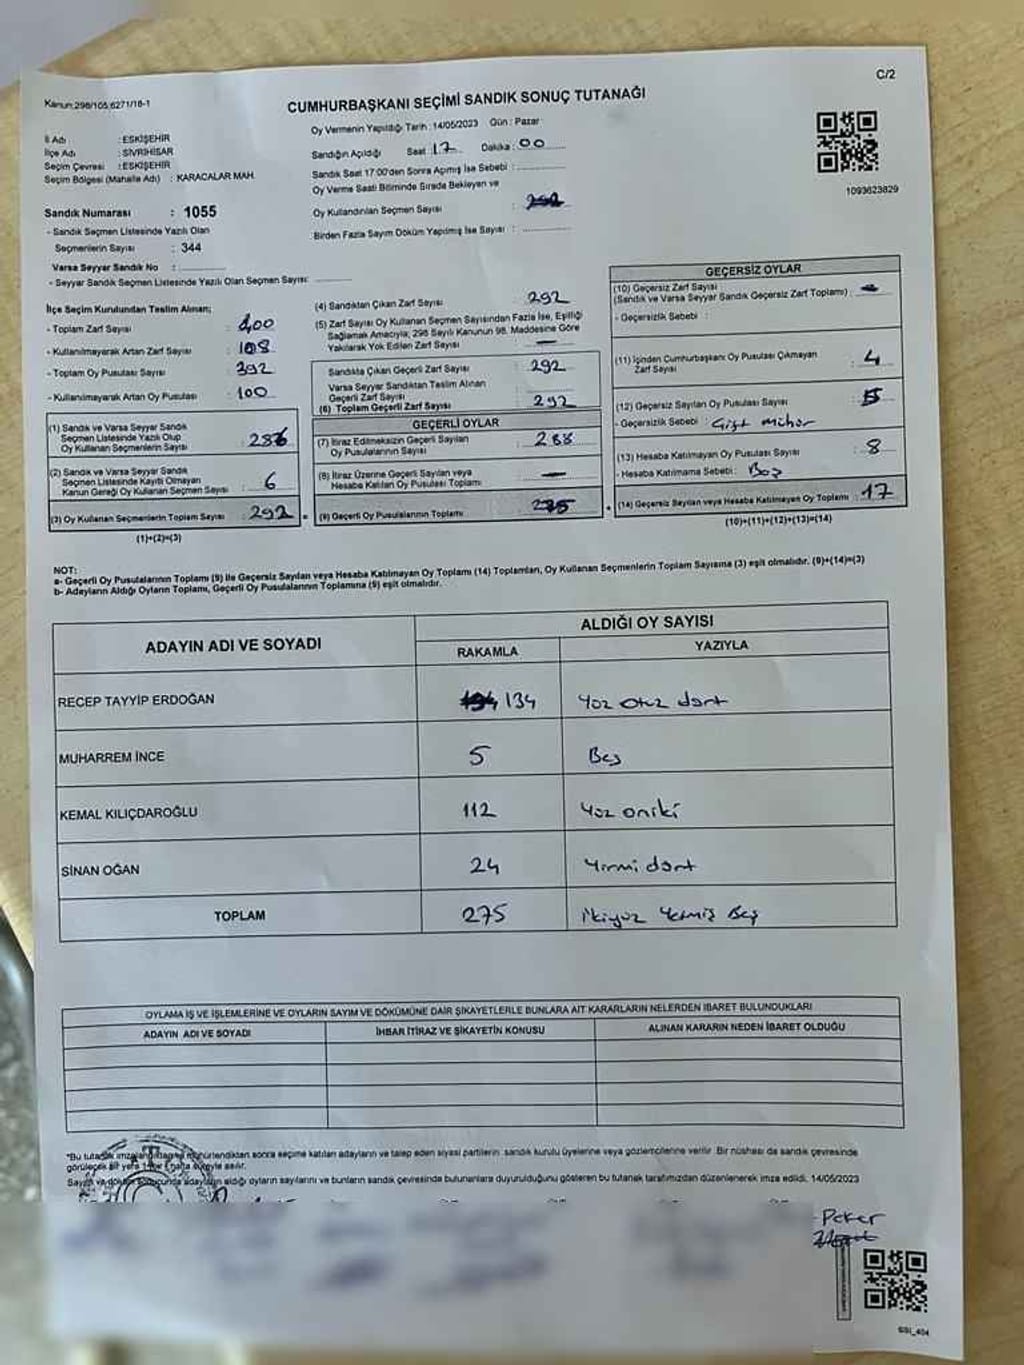 Kanun:298/105;6271/18-1
C/2
CUMHURBAŞKANI SEÇİMİ SANDIK SONUÇ TUTANAĞI
İl Adı : ESKİŞEHİR
İlçe Adı : SİVRİHİSAR
Seçim Çevresi : ESKİŞEHİR
Seçim Bölgesi (Mahalle Adı) : KARACALAR MAH.
Oy Vermenin Yapıldığı Tarih : 14/05/2023 Gün : Pazar
Sandığın Açıldığı Saat : 17 Dakika : 00
Sandık Saat 17:00'den Sonra Açmış İse Sebebi :
Oy Verme Saati Bitiminde Sırada Bekleyen ve
Oy Kullandırılan Seçmen Sayısı :
Birden Fazla Sayım Döküm Yapılmış İse Sayısı :
1093623829
Sandık Numarası : 1055
- Sandık Seçmen Listesinde Yazılı Olan
Seçmenlerin Sayısı : 344
Varsa Seyyar Sandık No :
- Seyyar Sandık Seçmen Listesinde Yazılı Olan Seçmen Sayısı:
İlçe Seçim Kurulundan Teslim Alınan;
- Toplam Zarf Sayısı : 400
- Kullanılmayarak Artan Zarf Sayısı : 108
- Toplam Oy Pusulası Sayısı : 392
- Kullanılmayarak Artan Oy Pusulası : 100
(1) Sandık ve Varsa Seyyar Sandık
Seçmen Listesinde Yazılı Olup
Oy Kullanan Seçmenlerin Sayısı : 286
(2) Sandık ve Varsa Seyyar Sandık
Seçmen Listesinde Kayıtlı Olmayan
Kanun Gereği Oy Kullanan Seçmen Sayısı : 6
(3) Oy Kullanan Seçmenlerin Toplam Sayısı : 292
(1)+(2)=(3)
(4) Sandıktan Çıkan Zarf Sayısı : 292
(5) Zarf Sayısı Oy Kullanan Seçmen Sayısından Fazla İse, Eşitliği
Sağlamak Amacıyla, 298 Sayılı Kanunun 98. Maddesine Göre
Yakılarak Yok Edilen Zarf Sayısı : —
Sandıkta Çıkan Geçerli Zarf Sayısı : 292
Varsa Seyyar Sandıktan Teslim Alınan
Geçerli Zarf Sayısı :
(6) Toplam Geçerli Zarf Sayısı : 292
GEÇERLİ OYLAR
(7) İtiraz Edilmeksizin Geçerli Sayılan
Oy Pusulalarının Sayısı : 288
(8) İtiraz Üzerine Geçerli Sayılan veya
Hesaba Katılan Oy Pusulası Toplamı : —
(9) Geçerli Oy Pusulalarının Toplamı : 275
GEÇERSİZ OYLAR
(10) Geçersiz Zarf Sayısı
(Sandık ve Varsa Seyyar Sandık Geçersiz Zarf Toplamı) : —
- Geçersizlik Sebebi :
(11) İçinden Cumhurbaşkanı Oy Pusulası Çıkmayan
Zarf Sayısı : 4
(12) Geçersiz Sayılan Oy Pusulası Sayısı : 5
- Geçersizlik Sebebi : Çift mühür
(13) Hesaba Katılmayan Oy Pusulası Sayısı : 8
- Hesaba Katılmama Sebebi : Boş
(14) Geçersiz Sayılan veya Hesaba Katılmayan Oy Toplamı : 17
(10)+(11)+(12)+(13)=(14)
NOT:
a- Geçerli Oy Pusulalarının Toplamı (9) ile Geçersiz Sayılan veya Hesaba Katılmayan Oy Toplamı (14) Toplamları, Oy Kullanan Seçmenlerin Toplam Sayısına (3) eşit olmalıdır. (9)+(14)=(3)
b- Adayların Aldığı Oyların Toplamı, Geçerli Oy Pusulalarının Toplamına (9) eşit olmalıdır.
ADAYIN ADI VE SOYADI
ALDIĞI OY SAYISI
RAKAMLA YAZIYLA
RECEP TAYYİP ERDOĞAN 134 Yüz otuz dört
MUHARREM İNCE 5 Beş
KEMAL KILIÇDAROĞLU 112 Yüz oniki
SİNAN OĞAN 24 Yirmi dört
TOPLAM 275 ikiyüz Yetmiş Beş
OYLAMA İŞ VE İŞLEMLERİNE VE OYLARIN SAYIM VE DÖKÜMÜNE DAİR ŞİKAYETLERLE BUNLARA AİT KARARLARIN NELERDEN İBARET BULUNDUKLARI
ADAYIN ADI VE SOYADI İHBAR İTİRAZ VE ŞİKAYETİN KONUSU ALINAN KARARIN NEDEN İBARET OLDUĞU
*Bu tutanak imzalandıktan ve mühürlendikten sonra seçime katılan adayların ve talep eden siyasi partilerin sandık kurulu üyelerine veya gözlemcilerine verilir. Bir nüshası da sandık çevresinde
görülecek bir yere 1 hafta süreyle asılır.
adayların aldığı oyların sayılarını ve bunların sandık çevresinde bulunanlara duyurulduğunu gösteren bu tutanak tarafımızdan düzenlenerek imza edildi. 14/05/2023
Peker